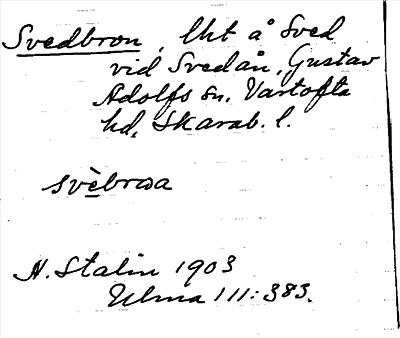 Svedbron, lht å Sved
vid Svedån, Gustav
Adolfs sn, Vartofta
hd, Skarab. l.
svèbroa
N. Stalin 1903
Ulma 111:383.